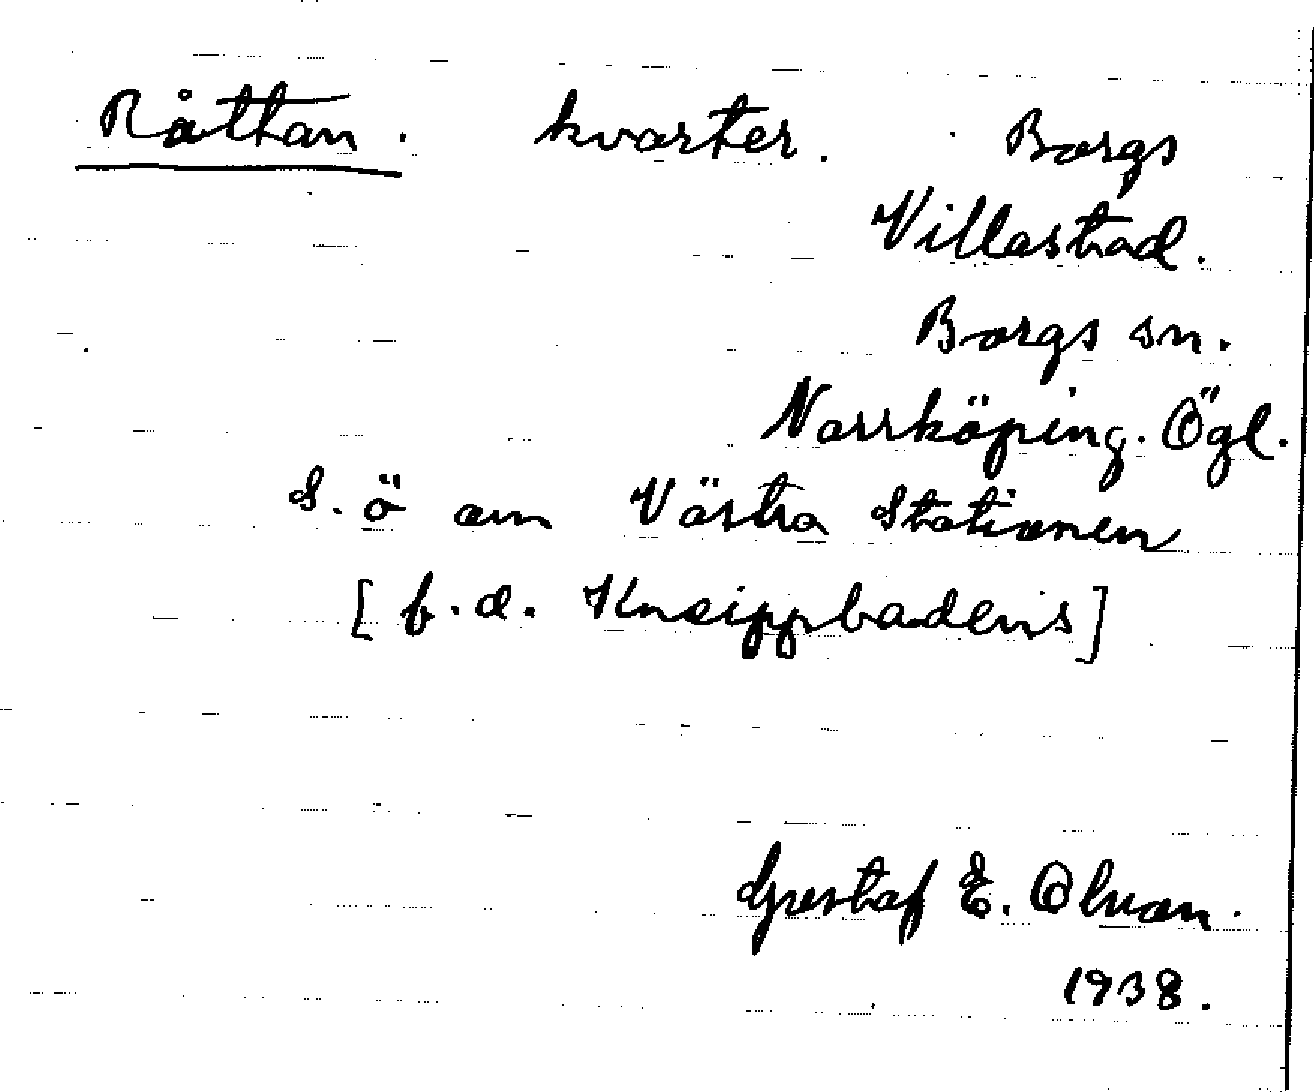 Råttan. kvarter. Borgs
Villastad.
Borgs sn.
Norrköping. Ögl.
S. ö om Västra Stationen
[f.d. Kneippbadens]
Gustaf E. Olson.
1938.